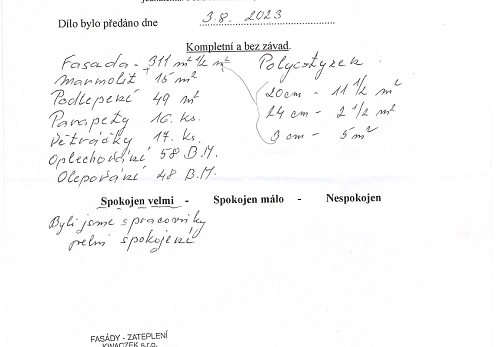 Dílo bylo předáno dne 3.8. 2023
Kompletní a bez závad.
Fasada - 311 m² 1/2 m²
Marmolit 15 m²
Podlepení 49 m²
Parapety 16. ks.
Větráčky 17. ks.
Oplechování 58 B.M.
Olepování 48 B.M.
Polystyren
20cm - 11 1/2 m²
24 cm - 2 1/2 m²
3 cm - 5 m²
Spokojen velmi - Spokojen málo - Nespokojen
Byli jsme s pracovníky
velmi spokojení
FASÁDY - ZATEPLENÍ
KWACZEK s.r.o.